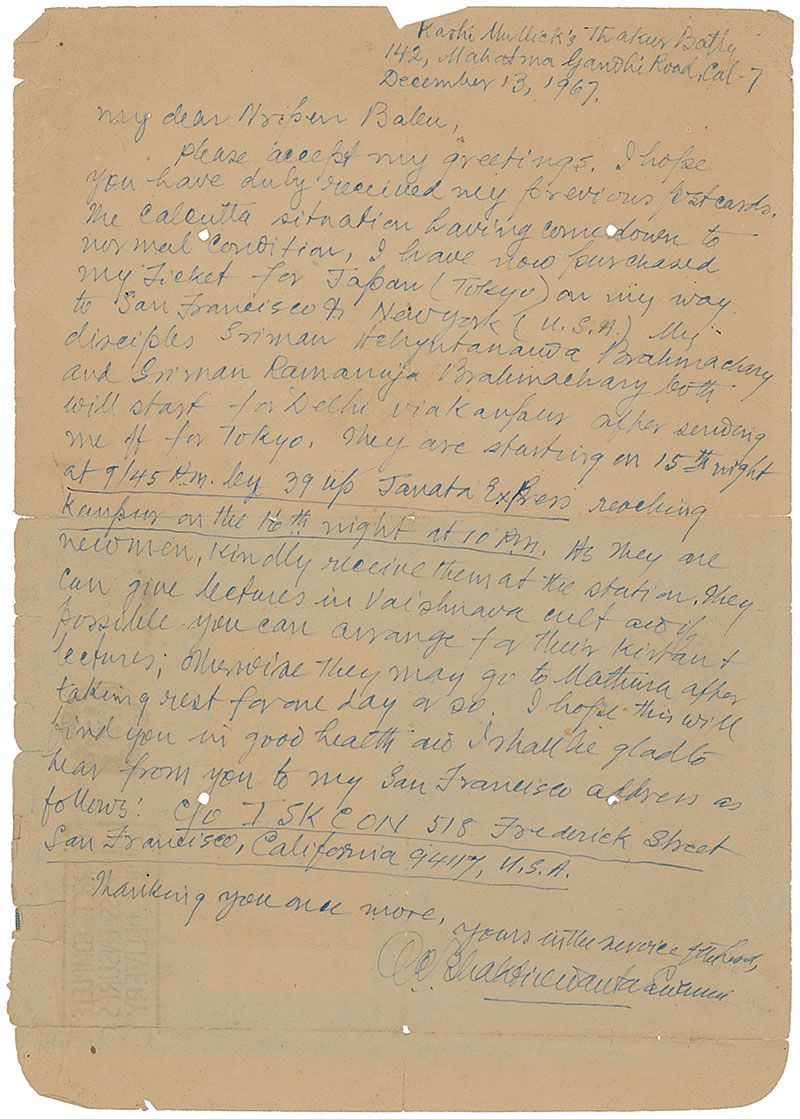 Kashi Mullick's Thakur Batty
142, Mahatma Gandhi Road, Cal-7
December 13, 1967.
My dear Nripen Babu,
Please accept my greetings. I hope
you have duly received my previous postcards.
The Calcutta situation having come down to
normal condition, I have now purchased
my Ticket for Japan (Tokyo) on my way
to San Francisco & Newyork (U.S.A.) My
disciples Sriman Achyutananda Brahmachary
and Sriman Ramanuja Brahmachary both
will start for Delhi via Kanpur after sending
me off for Tokyo. They are starting on 15th night
at 9/45 P.M. by 39 up Janata Express reaching
Kanpur on the 16th night at 10 P.M. As they are
newmen, kindly receive them at the station. They
can give lectures in Vaishnava cult and if
possible you can arrange for their Kirtan &
lectures; otherwise they may go to Mathura after
taking rest for one day or so. I hope this will
find you in good health and I shall be glad to
hear from you to my San Francisco address as
follows: C/o ISKCON 518 Frederick Street
San Francisco, California 94117, U.S.A.
Thanking you once more,
Yours in the service of the Lord,
A.C. Bhaktivedanta Swami